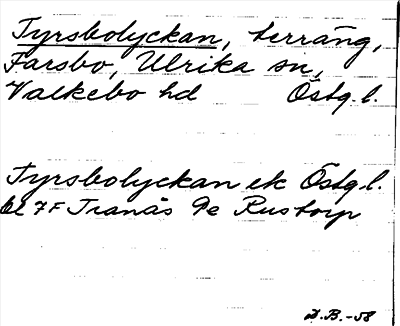 Tyrsbolyckan, terräng,
Farsbo, Ulrika sn,
Valkebo hd Östg.l.
Tyrsbolyckan ek Östg.l.
bl 7F Tranås 9e Rustorp
D.B.-58